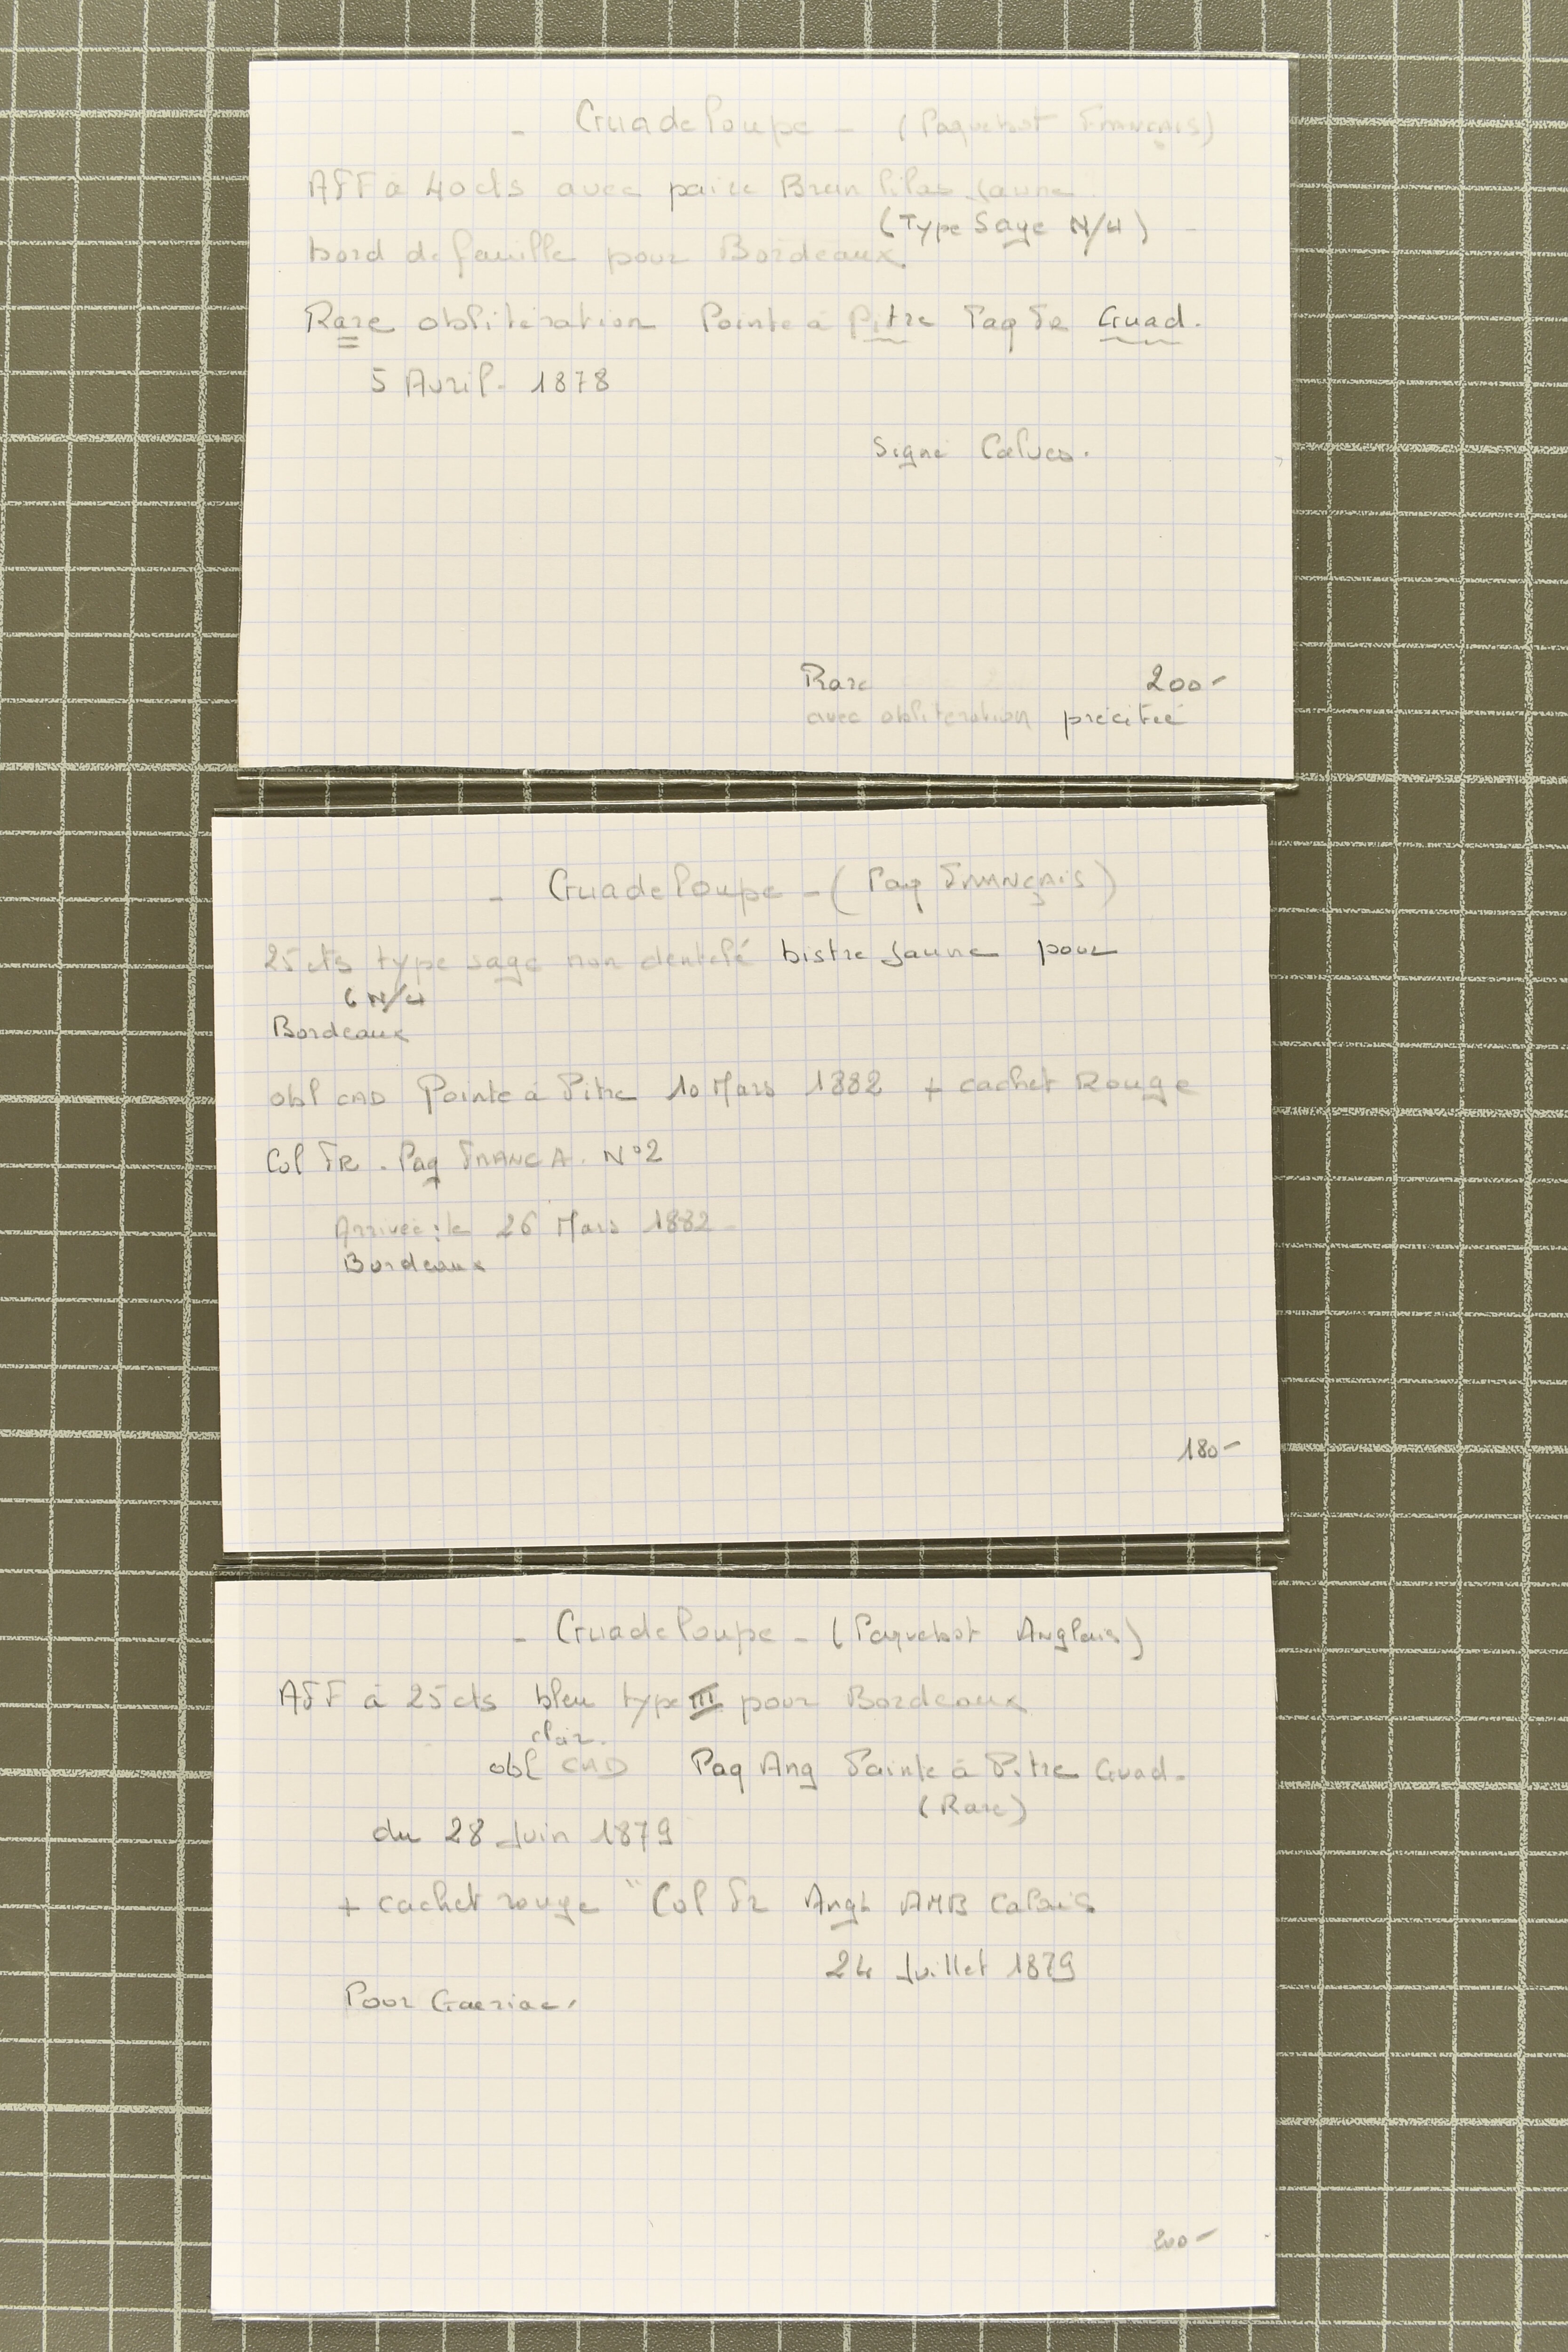 - Guadeloupe - (Paquebot FRANÇAIS)
AFF à 40cts avec paire Brun lilas Jaune
(Type Sage N/U)
bord de feuille pour Bordeaux
Rare oblitération Pointe à Pitre Paq FR Guad.
5 Avril. 1878
Signé Calves.
Rare 200-
avec oblitération précitée
- Guadeloupe - (Paq FRANÇAIS)
25cts type sage non dentelé bistre Jaune pour
N/U
Bordeaux
obl CAD Pointe à Pitre 10 Mars 1882 + cachet Rouge
Col FR. Paq FRANC A. N°2
Arrivée : le 26 Mars 1882
Bordeaux
180-
- Guadeloupe - (Paquebot Anglais)
AFF à 25cts bleu type III pour Bordeaux
clair.
obl CAD Paq Ang Pointe à Pitre Guad.
(Rare)
du 28 Juin 1879
+ cachet rouge "Col Fr Angl AMB Calais
24 Juillet 1879
Pour
200-